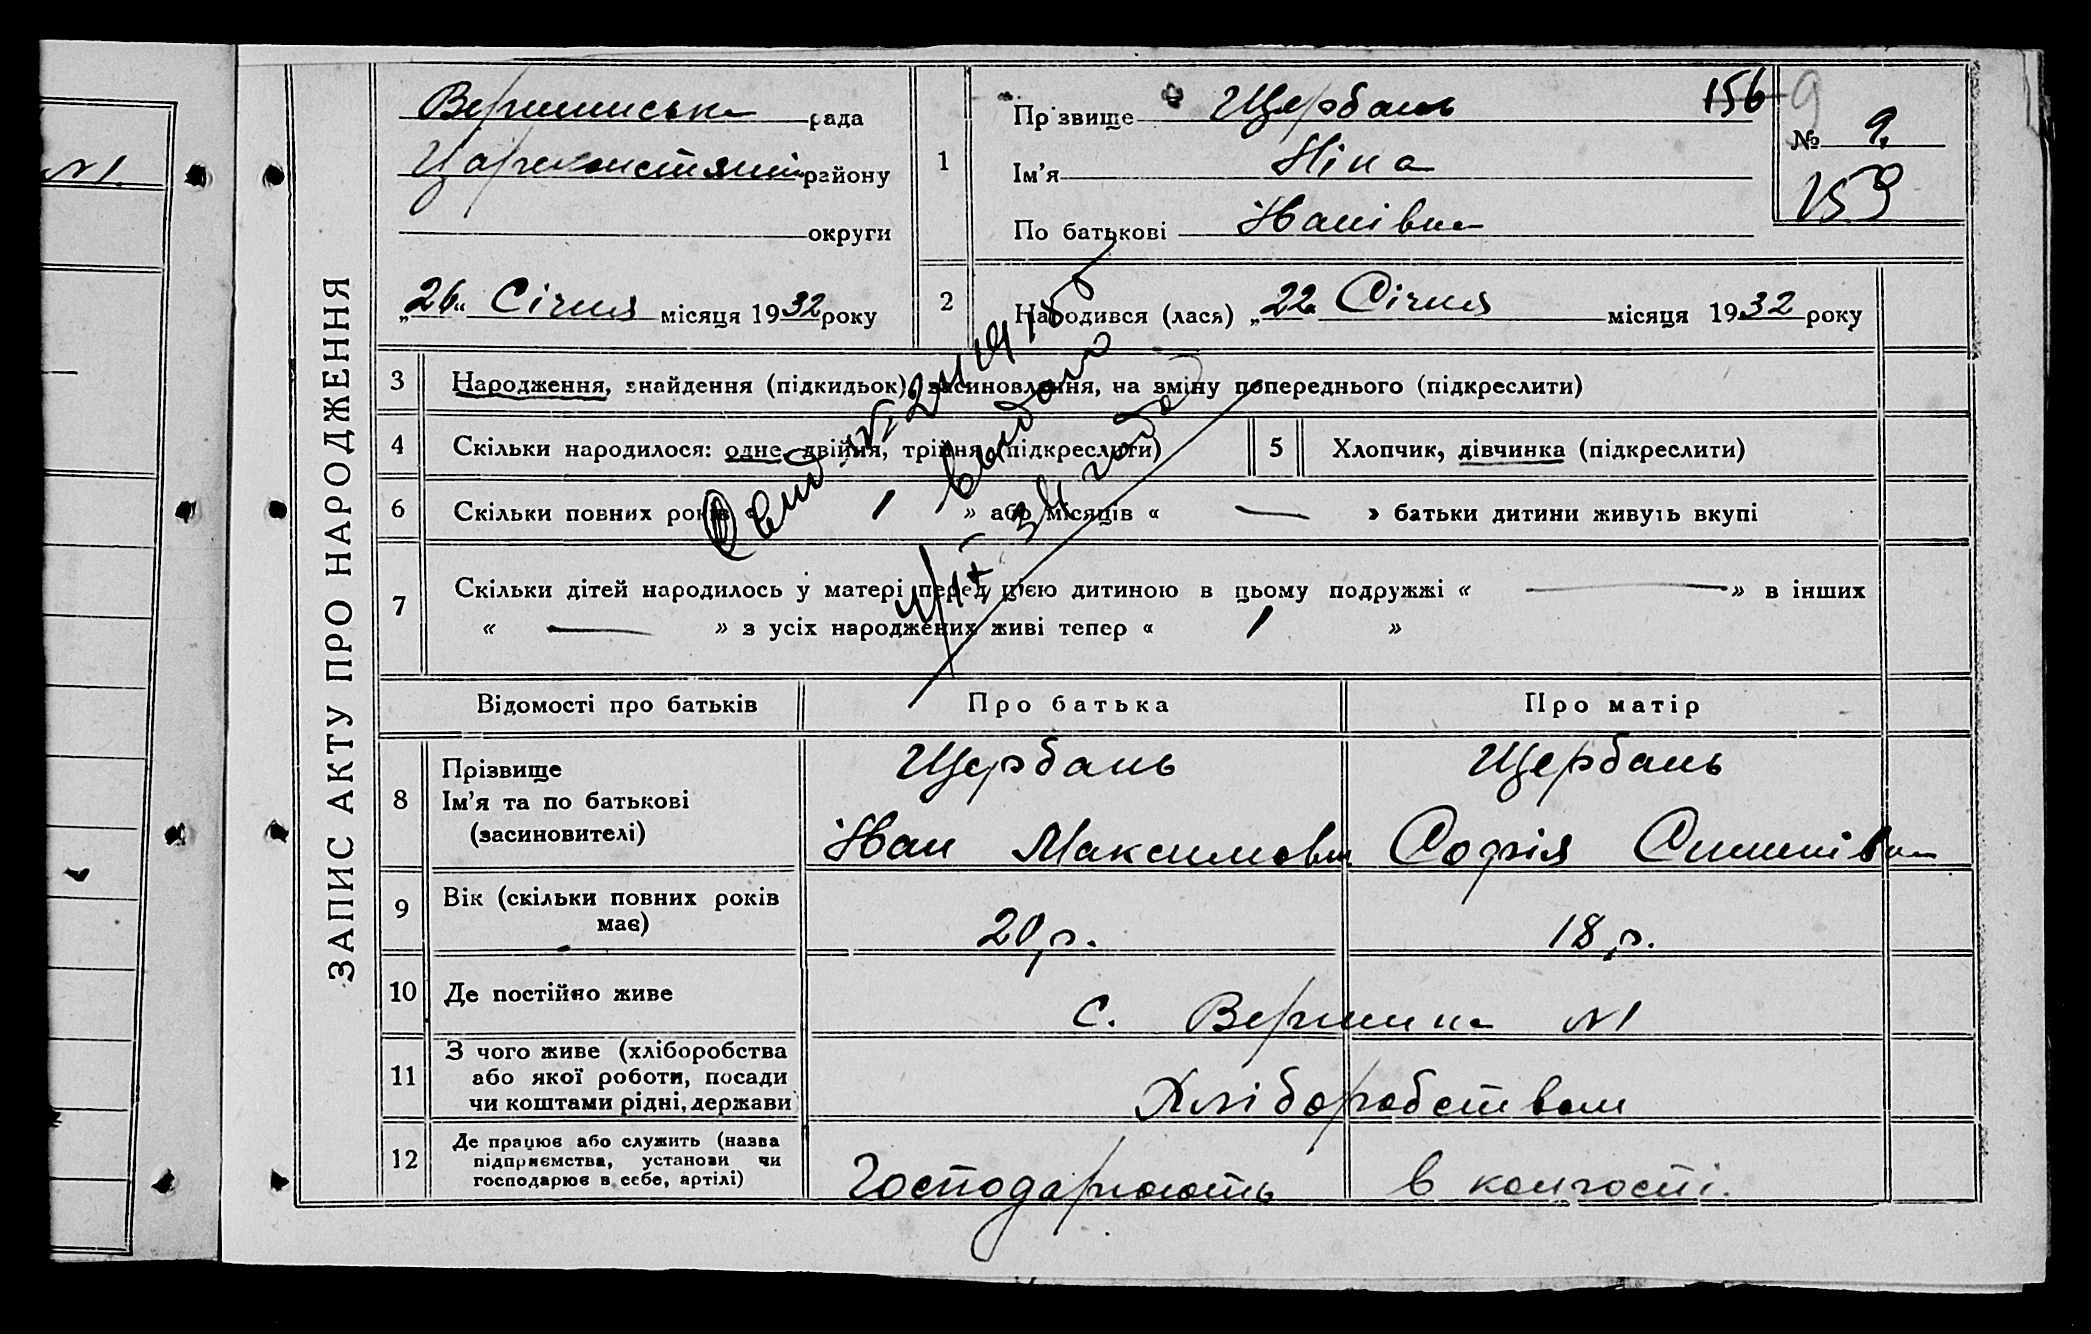 N1.
ЗАПИС АКТУ ПРО НАРОДЖЕННЯ
Вершинська рада
району
округи
„26“ Січня місяця 1932 року
1
Прізвище Щербань
Ім'я Ніна
По батькові Іванівна
156 9
№ 9
159
2
Народився (лася) „22“ Січня місяця 1932 року
3 Народження, знайдення (підкидьок), засиновлення, на зміну попереднього (підкреслити)
4 Скільки народилося: одне, двійня, трійня (підкреслити)
5 Хлопчик, дівчинка (підкреслити)
6 Скільки повних років « 1 » або місяців « — » батьки дитини живуть вкупі
7 Скільки дітей народилось у матері перед цією дитиною в цьому подружжі « — » в інших
« — » з усіх народжених живі тепер « 1 »
выдано
года
Відомості про батьків Про батька Про матір
8 Прізвище
Ім'я та по батькові
(засиновителі)
Щербань
Іван Максимович
Щербань
Софія
9 Вік (скільки повних років
має)
20 р. 18 р.
10 Де постійно живе
с. Вершина N1
11 З чого живе (хліборобства
або якої роботи, посади
чи коштами рідні, держави)
Хліборобством
12 Де працює або служить (назва
підприємства, установи чи
господарює в себе, артілі)
Господарюють в колгоспі.